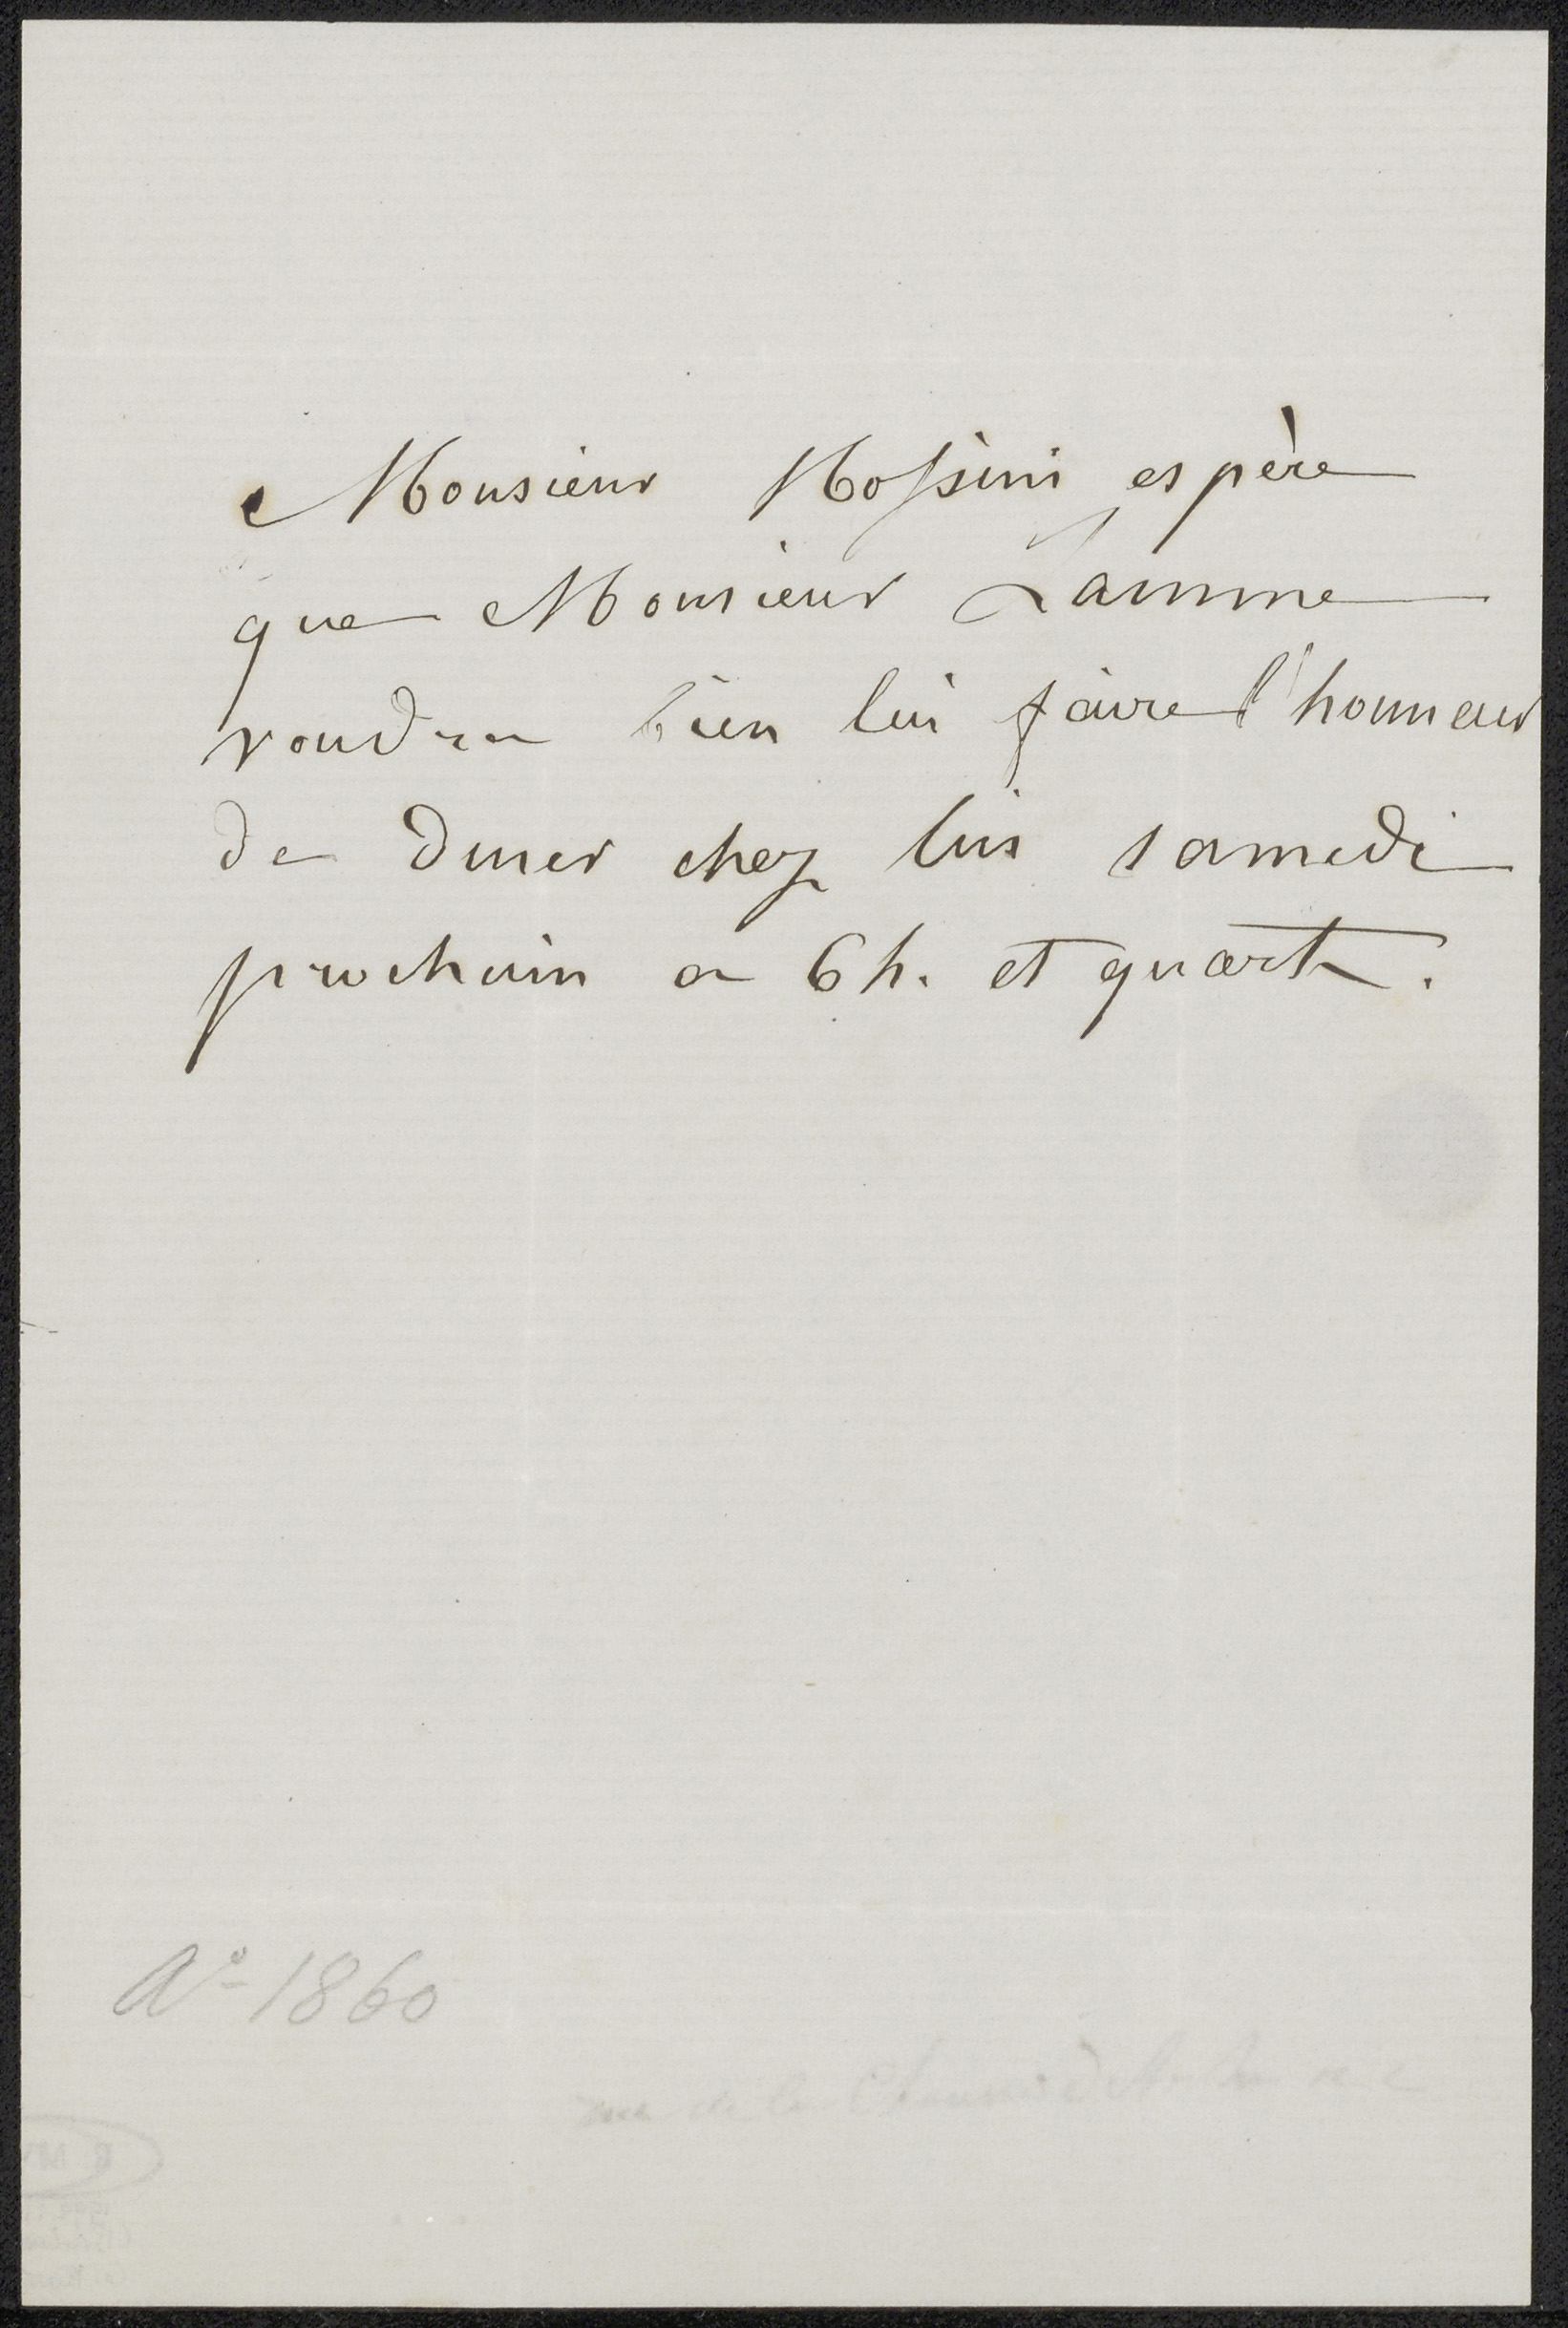 Monsieur Rossini espère
que Monsieur Lamme
voudra bien lui faire l'honneur
de diner chez lui samedi
prochain a 6 h. et quart.
Aº 1860
rue de la Chaussée d'Antin